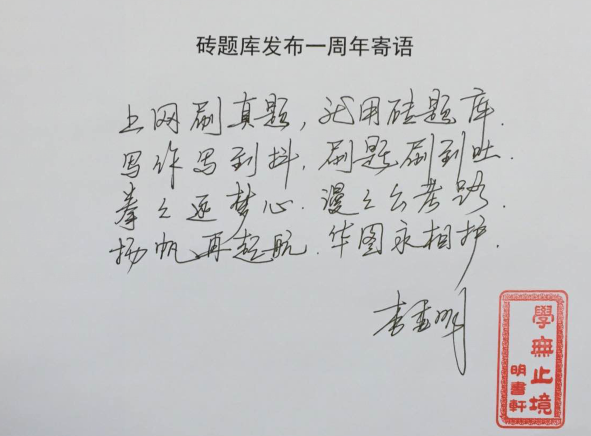 砖题库发布一周年寄语
上网刷真题，就用砖题库.
写作写到抖.刷题刷到吐.
拳々逐梦心.漫々公考路.
扬帆再起航.华图永相护.
李委明
學無止境
明書軒